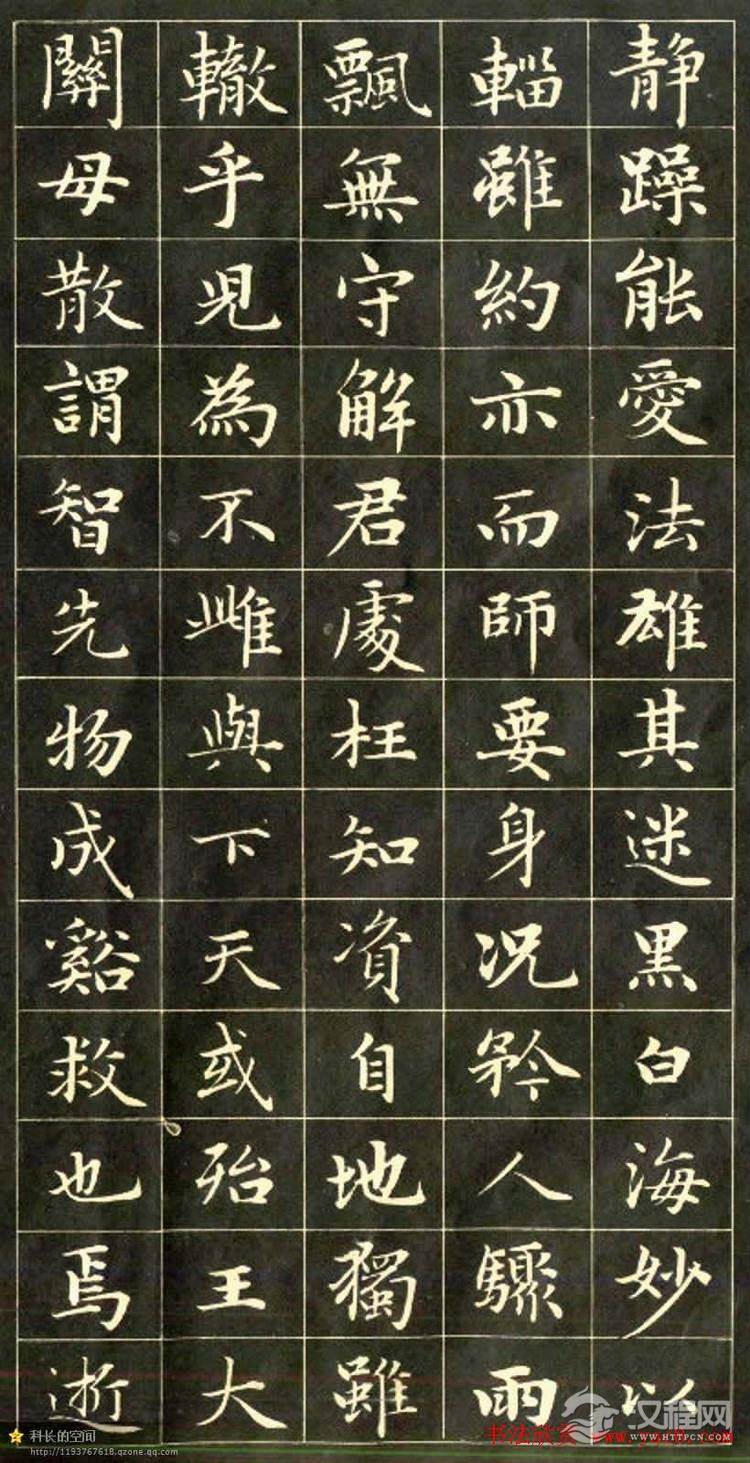 静躁能愛法雄其迷黑白海妙以
輜雖約亦而師要身况矜人驟雨
飄無守解君處枉知資自地獨雖
轍乎兒為不雌與下天或殆王大
關母散謂智先物成谿救也焉逝
科长的空间
http://1193767618.qzone.qq.com
书法欣赏
汉程网
WWW.HTTPCN.COM